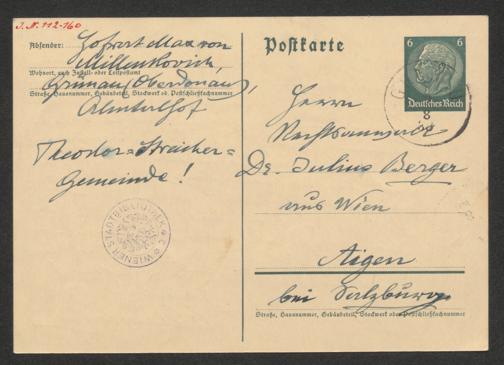 J.N. 112-160
Absender: Hofrat Max von
Millenkovich,
Wohnort, auch Zustell- oder Leitpostamt
Grünau, Oberdonau,
Straße, Hausnummer, Gebäudeteil, Stockwerk od. Postschließfachnummer
Almtalhof
Theodor=Streicher=
Gemeinde!
WIENER STADTBIBLIOTHEK
Postkarte
6 6
Deutsches Reich
8
Herrn
Rechtsanwalt
Dr. Julius Berger
aus Wien
Aigen
bei Salzburg
Straße, Hausnummer, Gebäudeteil, Stockwerk oder Postschließfachnummer